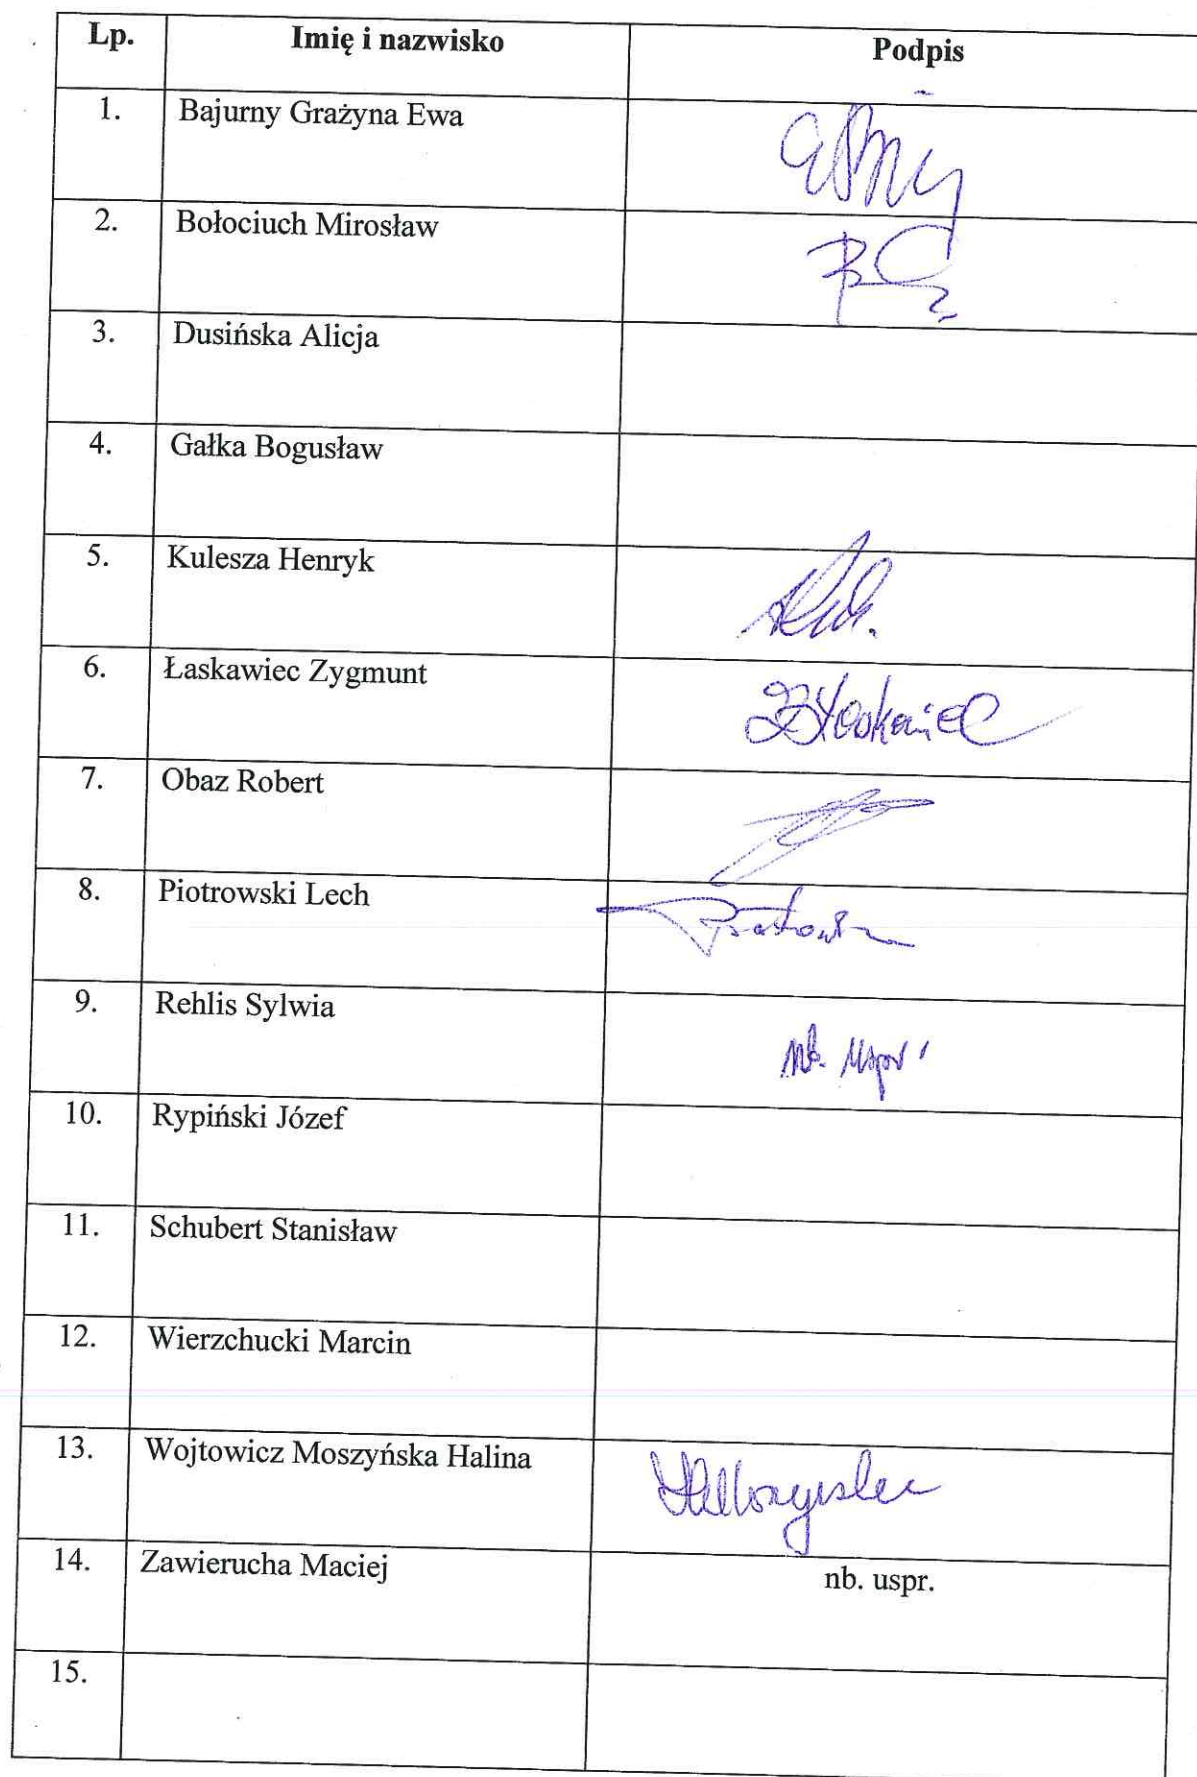 Lp. Imię i nazwisko Podpis
1. Bajurny Grażyna Ewa
2. Bołociuch Mirosław
3. Dusińska Alicja
4. Gałka Bogusław
5. Kulesza Henryk
6. Łaskawiec Zygmunt
7. Obaz Robert
8. Piotrowski Lech
9. Rehlis Sylwia nb. uspr.
10. Rypiński Józef
11. Schubert Stanisław
12. Wierzchucki Marcin
13. Wojtowicz Moszyńska Halina
14. Zawierucha Maciej nb. uspr.
15.